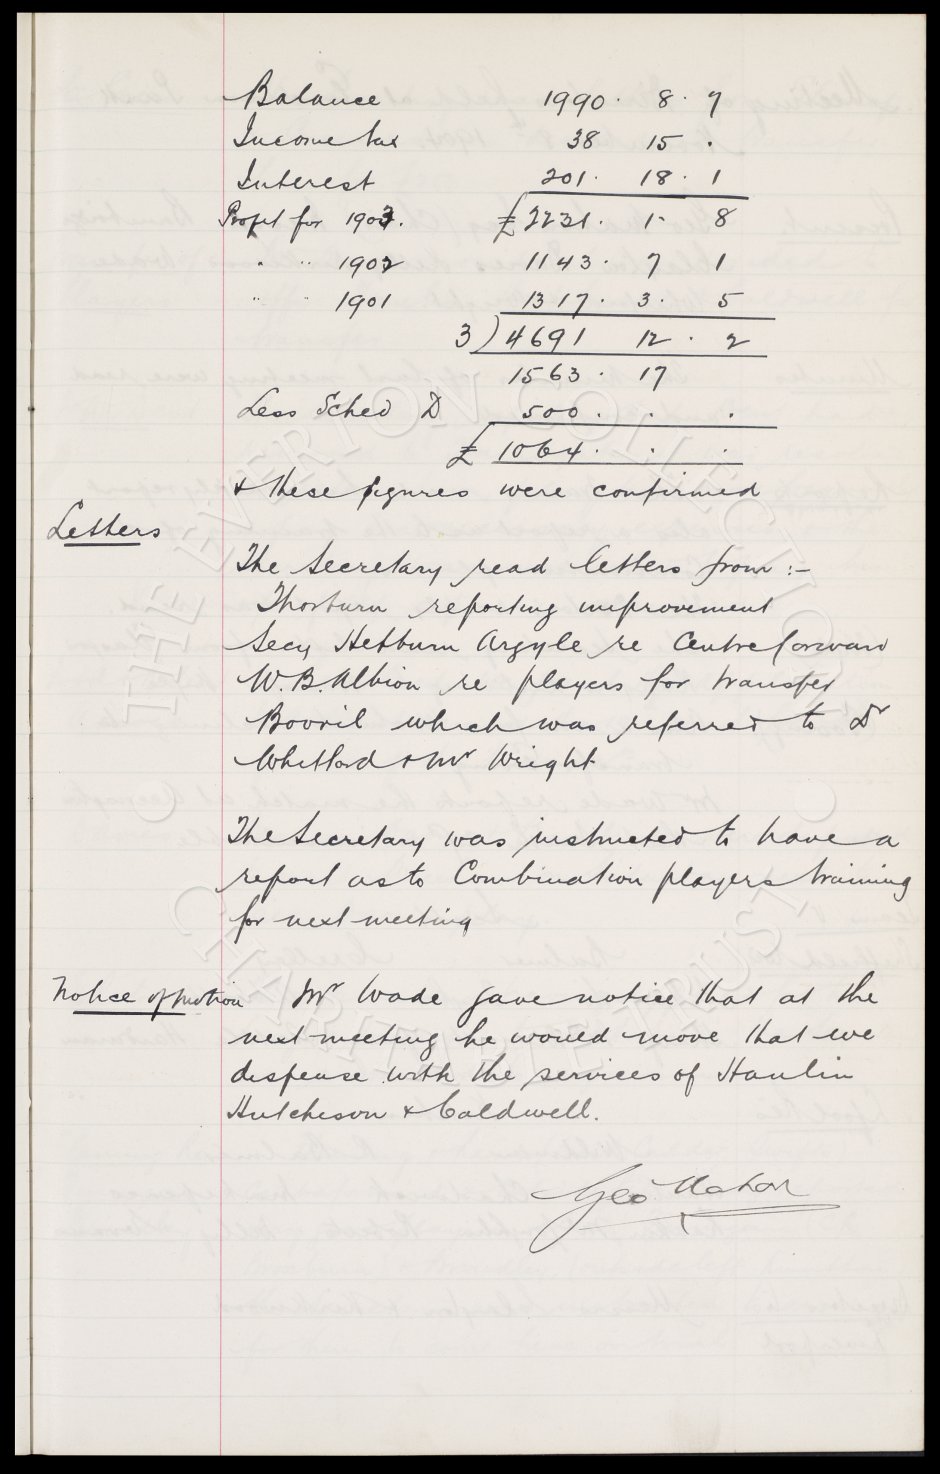 Balance 1990 . 8 . 7
Income tax 38 15 .
Interest 201 . 18 . 1
Profit for 1903. £2231 . 1 8
" " 1902 1143 . 7 1
" " 1901 1317 . 3 . 5
3) 4691 12 . 2
1563 . 17
Less Sched D 500 . . .
£ 1064 . . .
& these figures were confirmed
Letters
The Secretary read letters from :-
Thorburn reporting improvement
Secy Hebburn Argyle re Centre forward
W. B. Albion re players for transfer
Bovril which was referred to Dr
Whitford & Mr Wright
The Secretary was instructed to have a
report as to Combination players training
for next meeting
Notice of motion Mr Wade gave notice that at the
next meeting he would move that we
dispense with the services of Hanlin
Hutcheson & Caldwell.
Geo Mahon
THE EVERTON COLLECTION
CHARITABLE TRUST